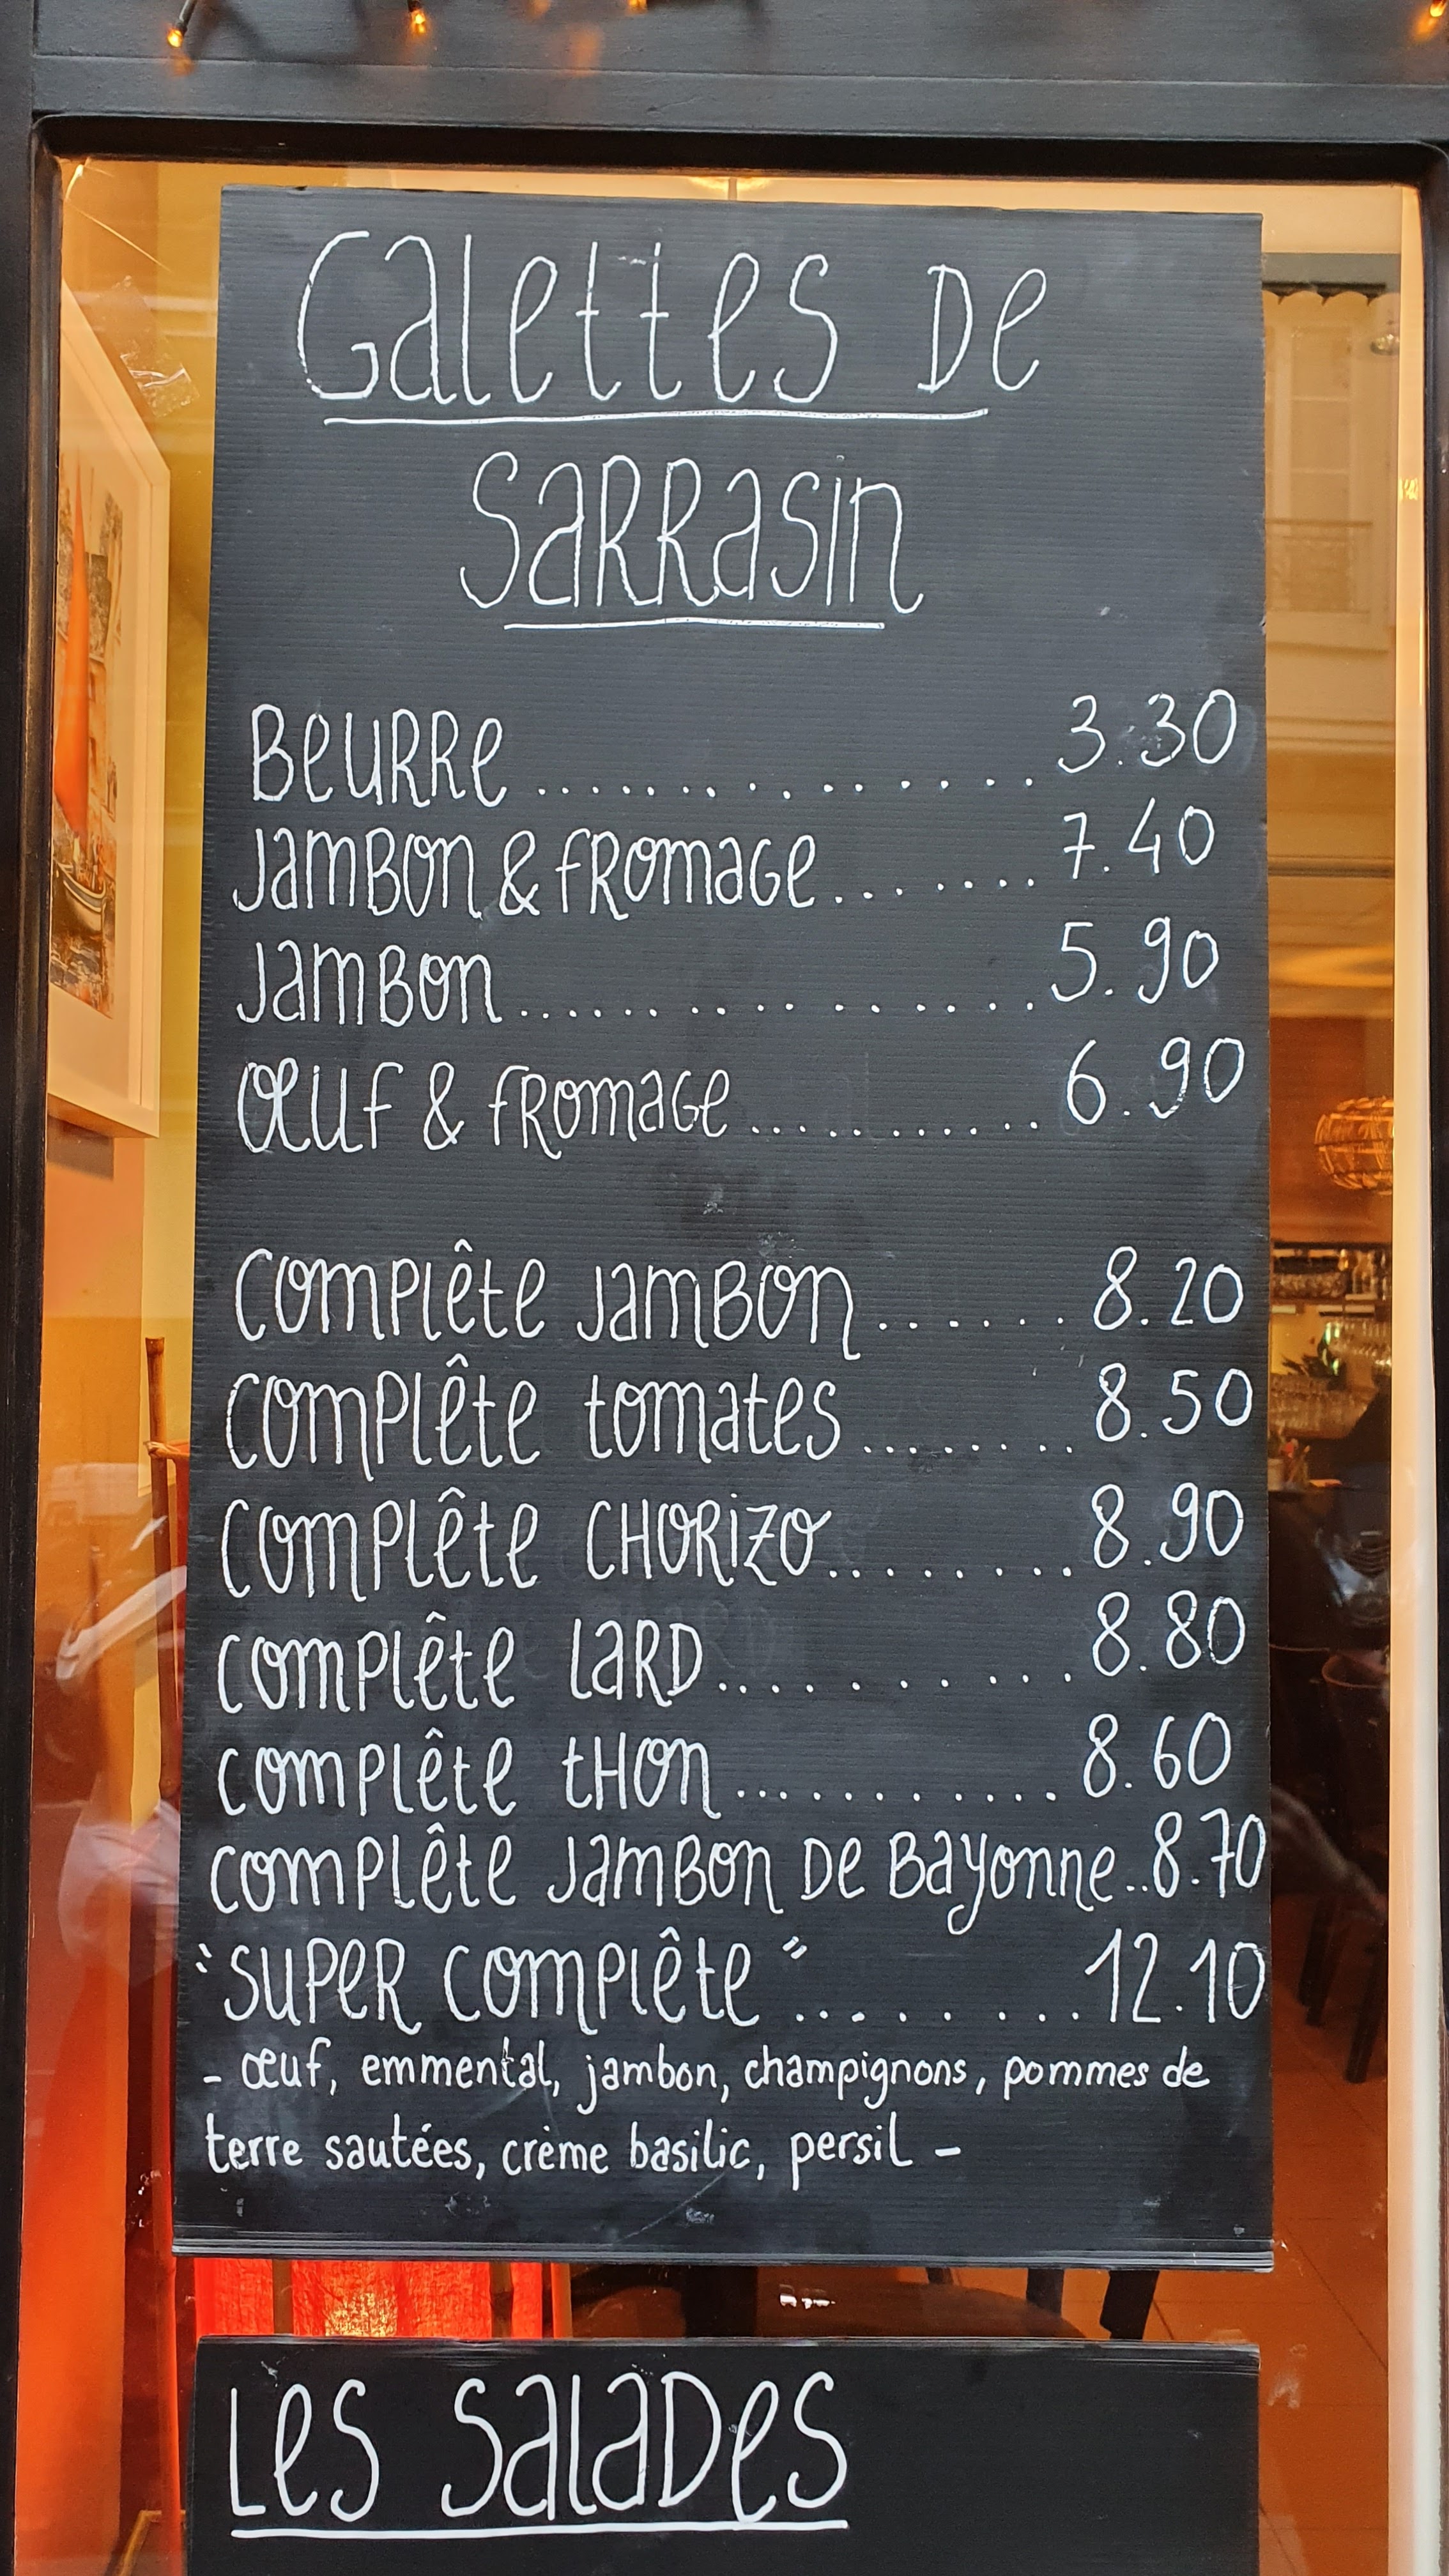 Galettes De
Sarrasin
Beurre................3.30
Jambon & fromage........7.40
Jambon..................5.90
Œuf & fromage...........6.90
Complête Jambon.......8.20
Complête tomates........8.50
Complête CHORiZO........8.90
Complête LARD..........8.80
Complête tHon............8.60
Complête Jambon De Bayonne..8.70
"Super Complête".........12.10
- œuf, emmental, jambon, champignons, pommes de
terre sautées, crème basilic, persil -
Les Salades